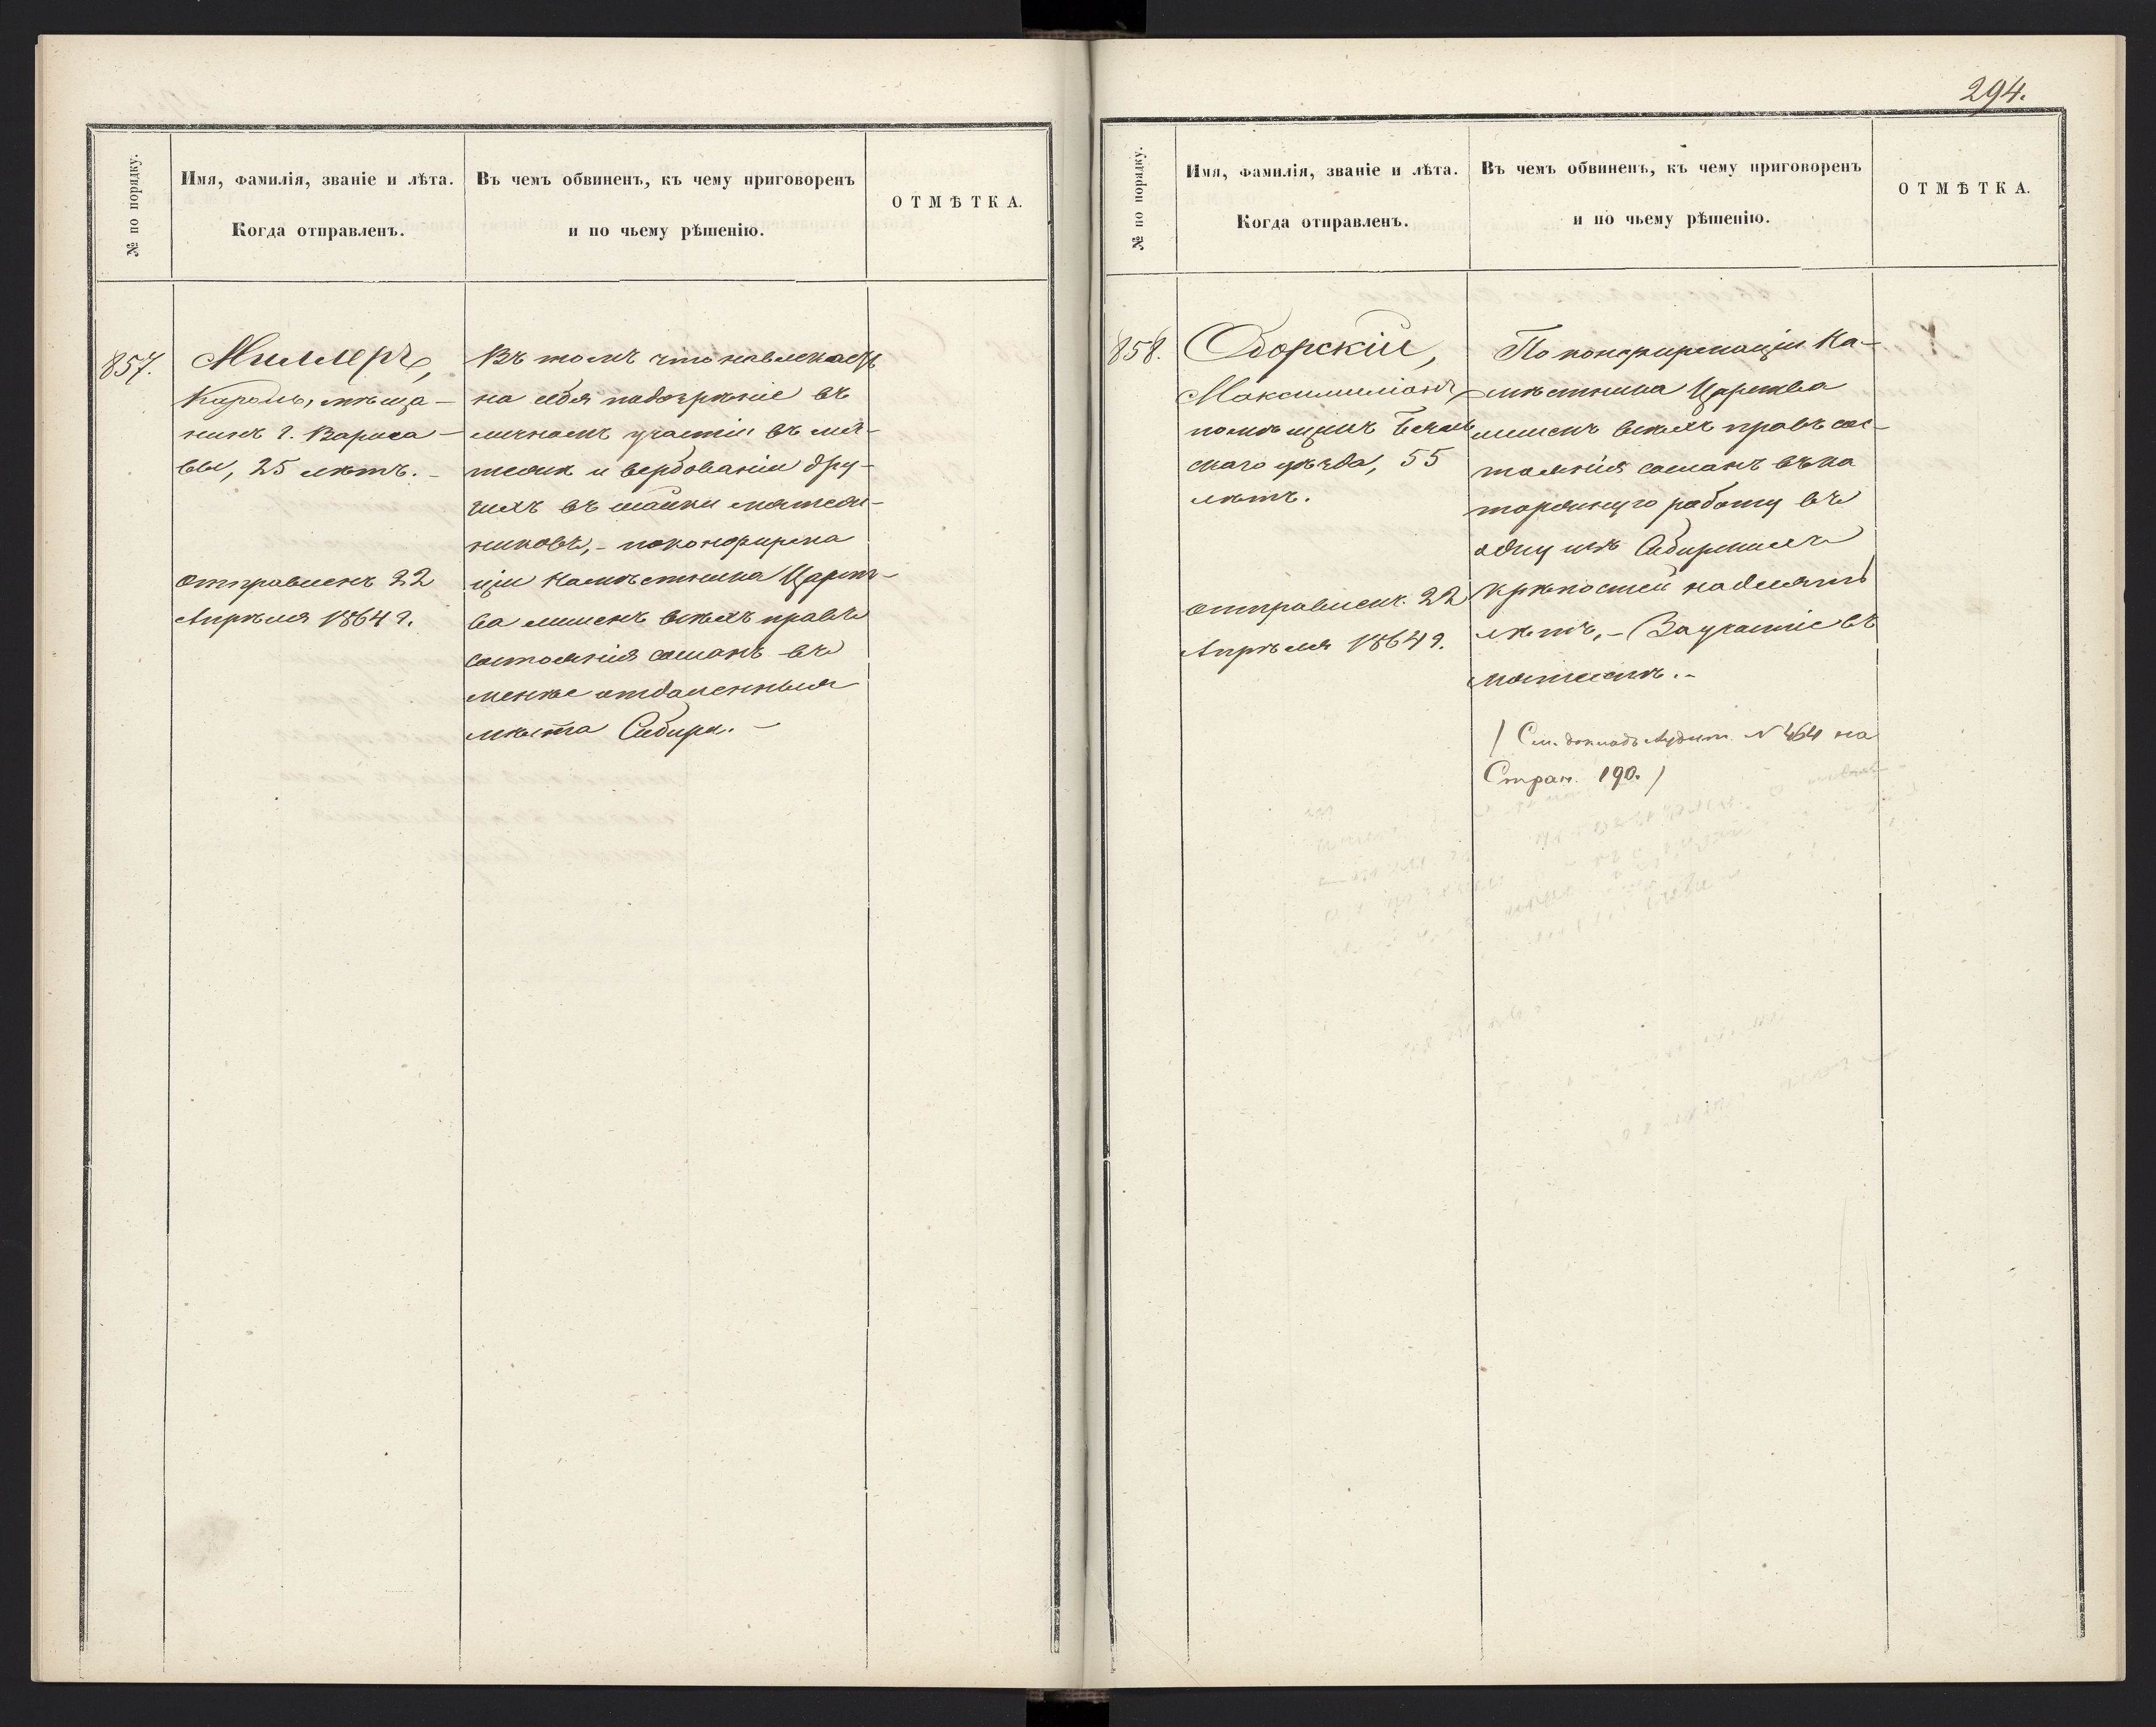 № по порядку.
Имя, фамилія, званіе и лѣта.
Когда отправленъ.
Въ чемъ обвиненъ, къ чему приговоренъ
и по чьему рѣшенію.
ОТМѢТКА.
857.
Миллеръ,
Кароль, мѣща-
нинъ г. Варша-
вы, 25 лѣтъ.-
отправленъ 22
Апрѣля 1864 г.
Въ томъ что навлекаетъ
на себя подозрѣніе въ
личномъ участіи въ мя-
тежѣ и вербованіи дру-
гихъ въ шайки мятеж-
никовъ,- по конфирма
ціи Намѣстника Царст-
ва лишенъ всѣхъ правъ
состоянія сосланъ въ
менѣе отдаленныя
мѣста Сибири.-
294.
№ по порядку.
Имя, фамилія, званіе и лѣта.
Когда отправленъ.
Въ чемъ обвиненъ, къ чему приговоренъ
и по чьему рѣшенію.
ОТМѢТКА.
858.
Оборскій,
Максимиліанъ
помѣщикъ
скаго уѣзда, 55
лѣтъ.
отправленъ 22
Апрѣля 1864 г.
По конфирмаціи На-
мѣстника Царства
лишенъ всѣхъ правъ сос-
тоянія сосланъ въ ка
торжную работу въ
одну изъ Сибирскихъ
крѣпостей на девять
лѣтъ,- За участіе въ
мятежѣ.-
/ См. докладъ Аудит. № 464 на
Стран. 190. /